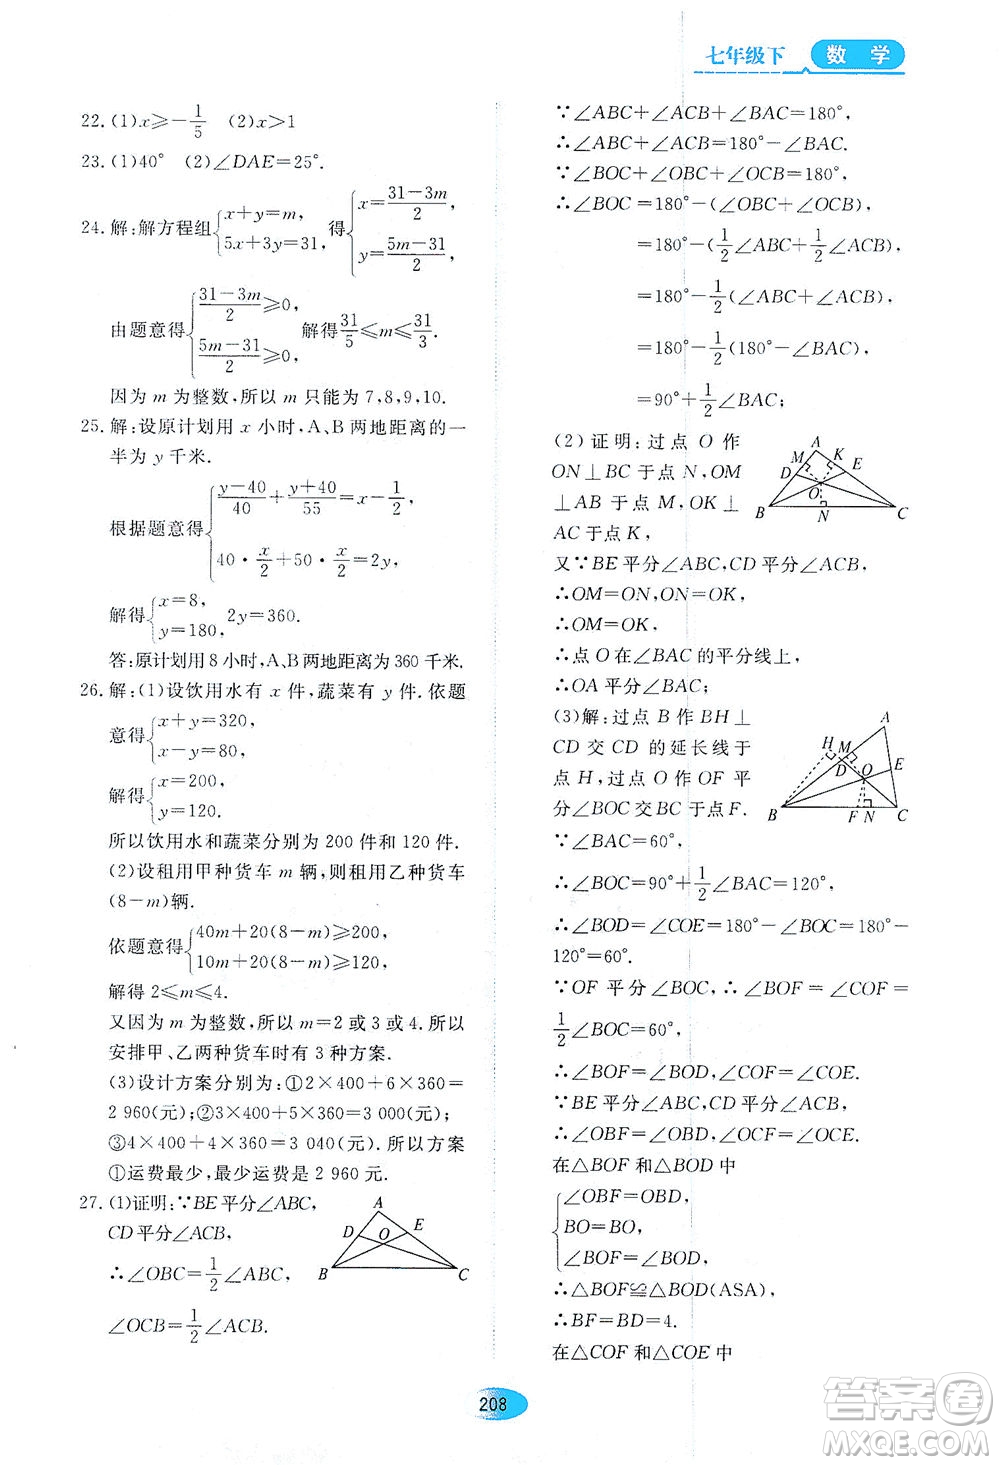 七年级下 数 学
22. (1)x≥-1/5 (2)x>1
23. (1)40° (2)∠DAE=25°.
24. 解:解方程组{x+y=m, 5x+3y=31, 得{x=(31-3m)/2, y=(5m-31)/2,
由题意得{(31-3m)/2≥0, (5m-31)/2≥0, 解得31/5≤m≤31/3.
因为 m 为整数,所以 m 只能为 7,8,9,10.
25. 解:设原计划用 x 小时,A、B 两地距离的一
半为 y 千米.
根据题意得{(y-40)/40+(y+40)/55=x-1/2, 40·x/2+50·x/2=2y,
解得{x=8, y=180, 2y=360.
答:原计划用 8 小时,A、B 两地距离为 360 千米.
26. 解:(1)设饮用水有 x 件,蔬菜有 y 件. 依题
意得{x+y=320, x-y=80,
解得{x=200, y=120.
所以饮用水和蔬菜分别为 200 件和 120 件.
(2)设租用甲种货车 m 辆,则租用乙种货车
(8-m)辆.
依题意得{40m+20(8-m)≥200, 10m+20(8-m)≥120,
解得 2≤m≤4.
又因为 m 为整数,所以 m=2 或 3 或 4. 所以
安排甲、乙两种货车时有 3 种方案.
(3)设计方案分别为:①2×400+6×360=
2 960(元);②3×400+5×360=3 000(元);
③4×400+4×360=3 040(元). 所以方案
①运费最少,最少运费是 2 960 元.
27. (1)证明:∵BE 平分∠ABC,
CD 平分∠ACB,
∴∠OBC=1/2∠ABC,
∠OCB=1/2∠ACB.
A D O E B C
∵∠ABC+∠ACB+∠BAC=180°,
∴∠ABC+∠ACB=180°-∠BAC.
∵∠BOC+∠OBC+∠OCB=180°,
∴∠BOC=180°-(∠OBC+∠OCB)
=180°-(1/2∠ABC+1/2∠ACB)
=180°-1/2(∠ABC+∠ACB),
=180°-1/2(180°-∠BAC)
=90°+1/2∠BAC;
(2) 证明:过点 O 作
ON⊥BC 于点 N,OM
⊥AB 于点 M,OK⊥
AC 于点 K,
A M K D E O B N C
又∵BE 平分∠ABC,CD 平分∠ACB,
∴OM=ON,ON=OK,
∴OM=OK,
∴点 O 在∠BAC 的平分线上,
∴OA 平分∠BAC;
(3)解:过点 B 作 BH⊥
CD 交 CD 的延长线于
点 H,过点 O 作 OF 平
分∠BOC 交 BC 于点 F.
A H M D O E B F N C
∵∠BAC=60°,
∴∠BOC=90°+1/2∠BAC=120°,
∴∠BOD=∠COE=180°-∠BOC=180°-
120°=60°.
∵OF 平分∠BOC,∴∠BOF=∠COF=
1/2∠BOC=60°,
∴∠BOF=∠BOD,∠COF=∠COE.
∵BE 平分∠ABC,CD 平分∠ACB,
∴∠OBF=∠OBD,∠OCF=∠OCE.
在△BOF 和△BOD 中
{∠OBF=OBD, BO=BO, ∠BOF=∠BOD,
∴△BOF≌△BOD(ASA),
∴BF=BD=4.
在△COF 和△COE 中
208
答案圈
MXQE.COM